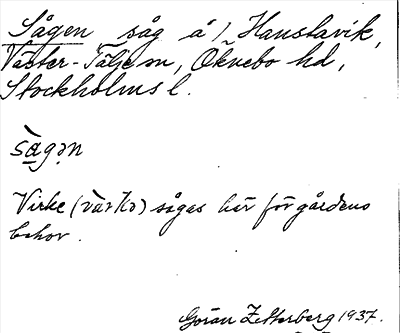 Sågen såg å 1, Hanstavik,
Väster-Tälje sn, Öknebo hd,
Stockholms l.
sàgən
Virke (vàrkə) sågas här för gårdens
behov.
Göran Zetterberg 1937.